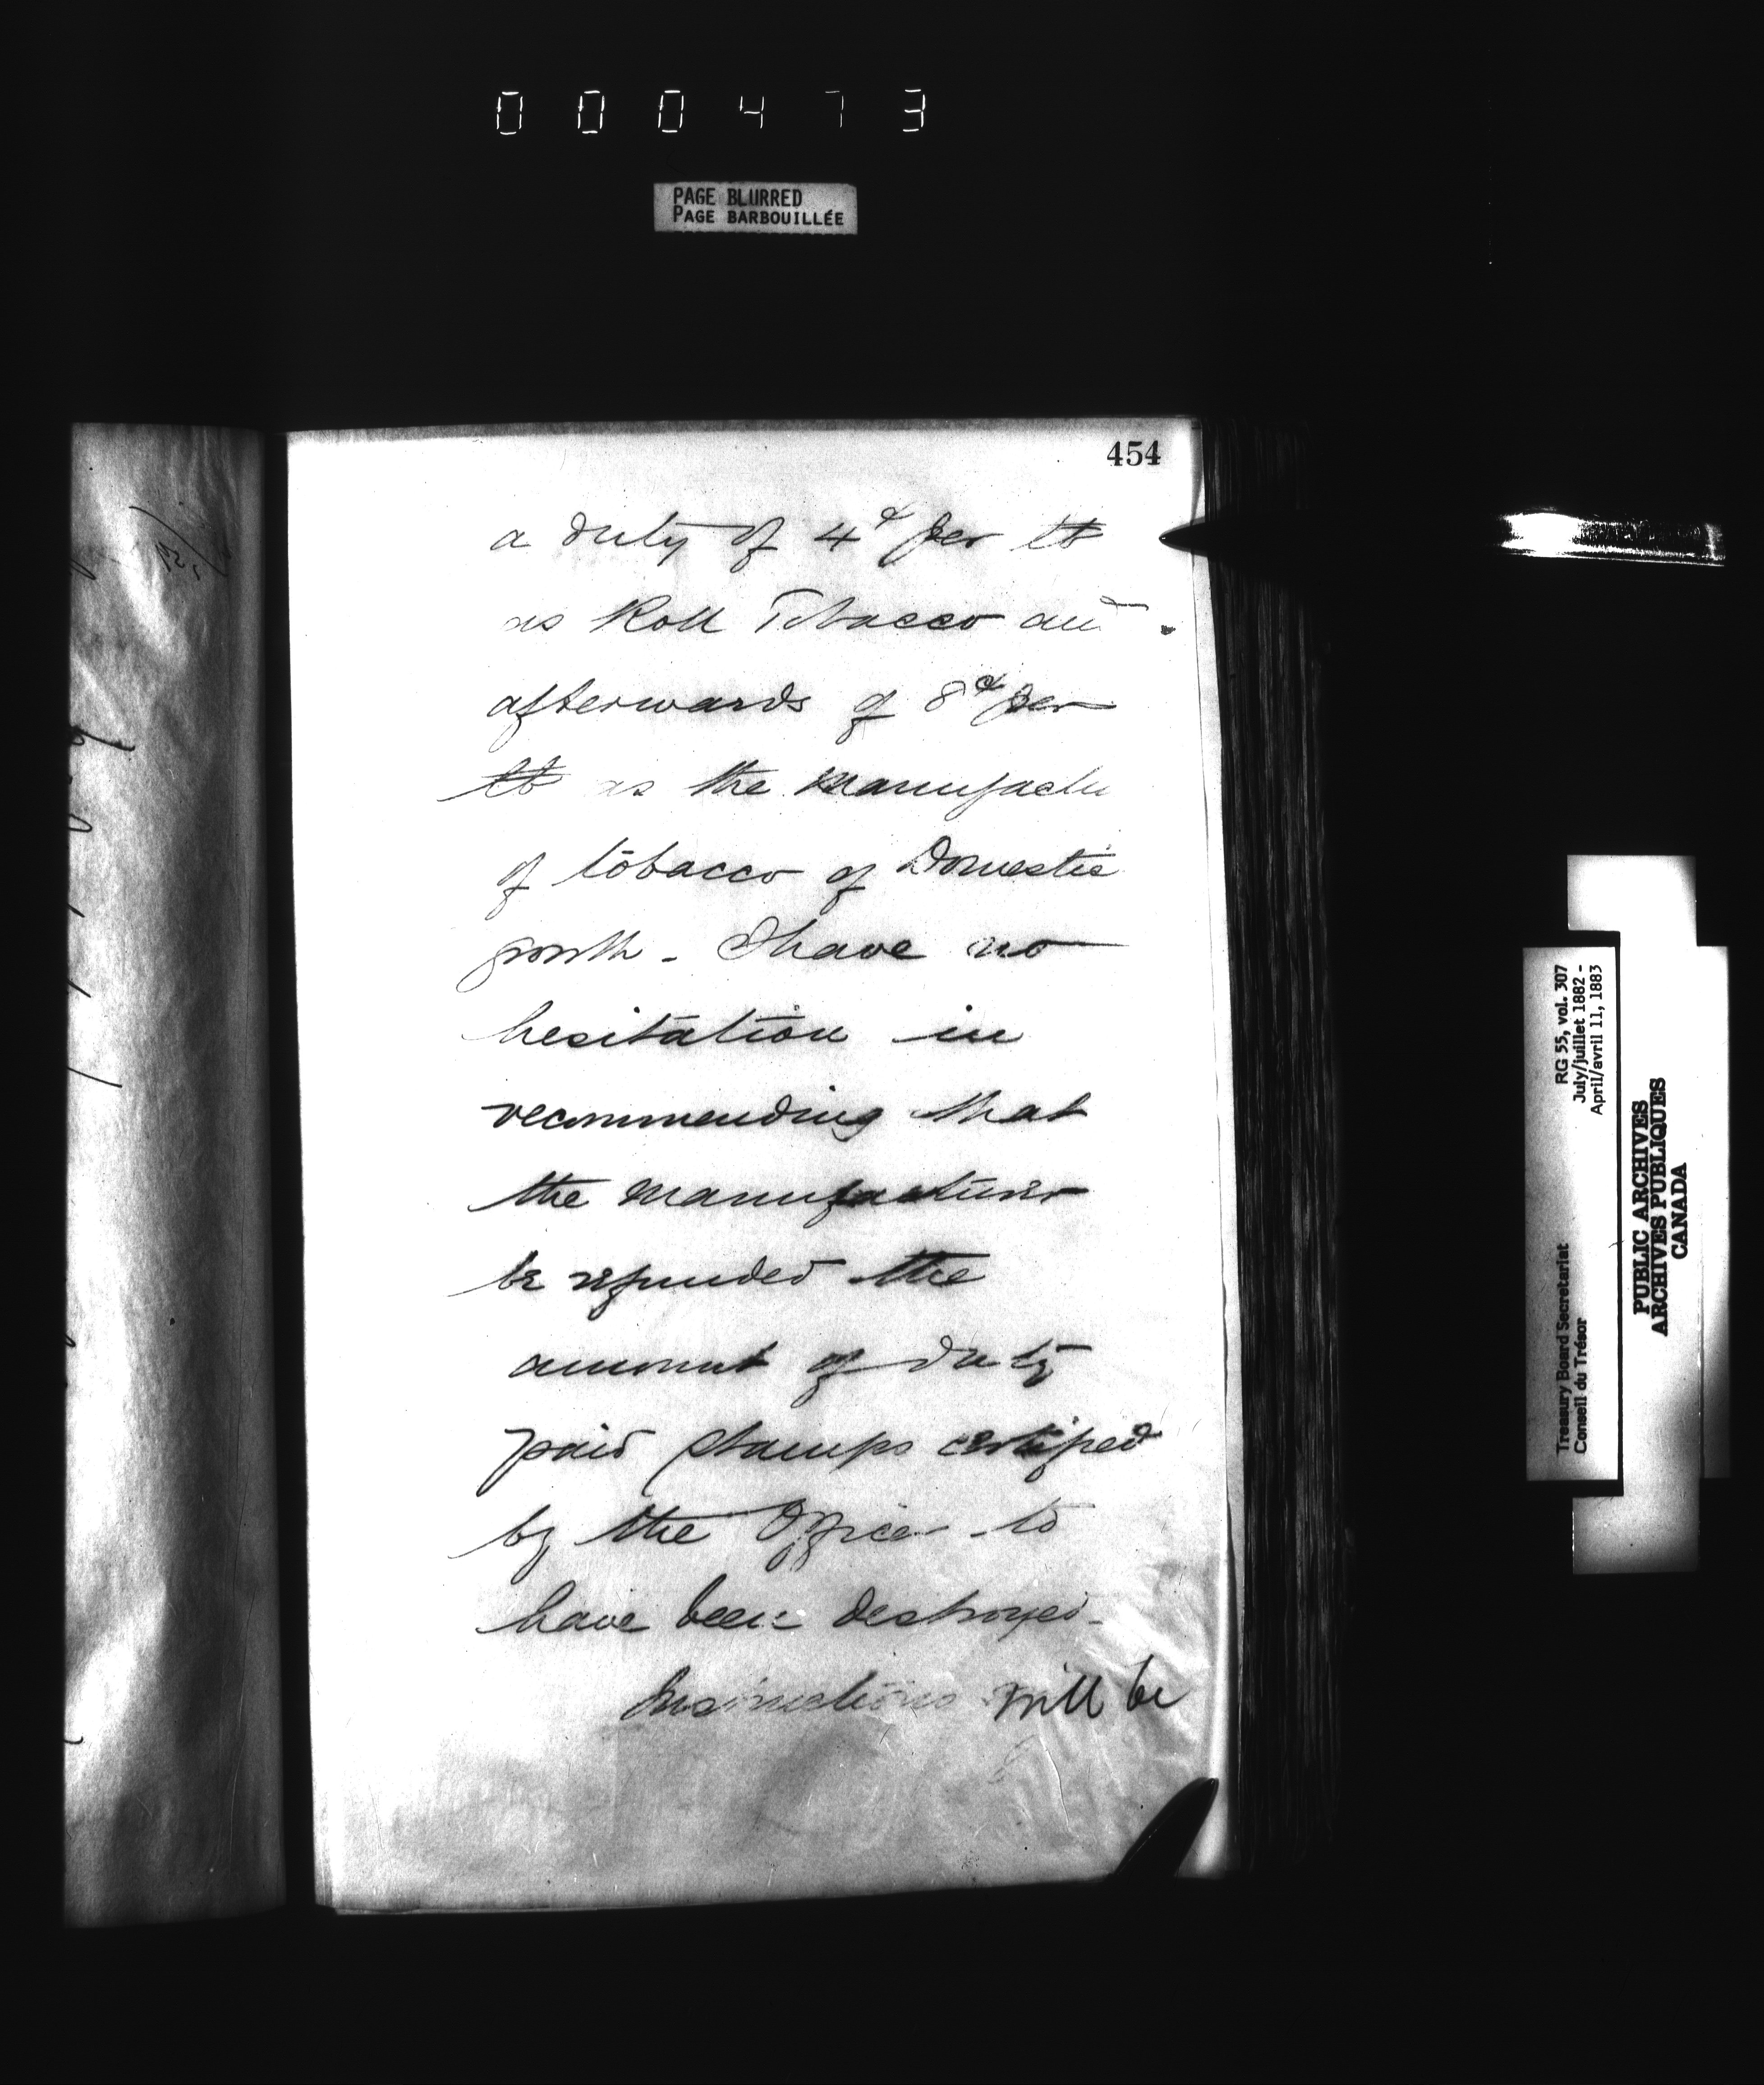 000473
PAGE BLURRED
PAGE BARBOUILLÉE
454
a duty of 4¢ per lb
as Roll Tobacco and
afterwards of 8¢ per
lb as the Manufactu
of tobacco of Domestic
growth - I have no
hesitation in
recommending that
the Manufacturer
be refunded the
amount of duty
paid stamps certified
by the Officer to
have been destroyed -
Instructions will be
Treasury Board Secretariat
Conseil du Trésor
RG 55, vol. 307
July/juillet 1882 -
April/avril 11, 1883
PUBLIC ARCHIVES
ARCHIVES PUBLIQUES
CANADA